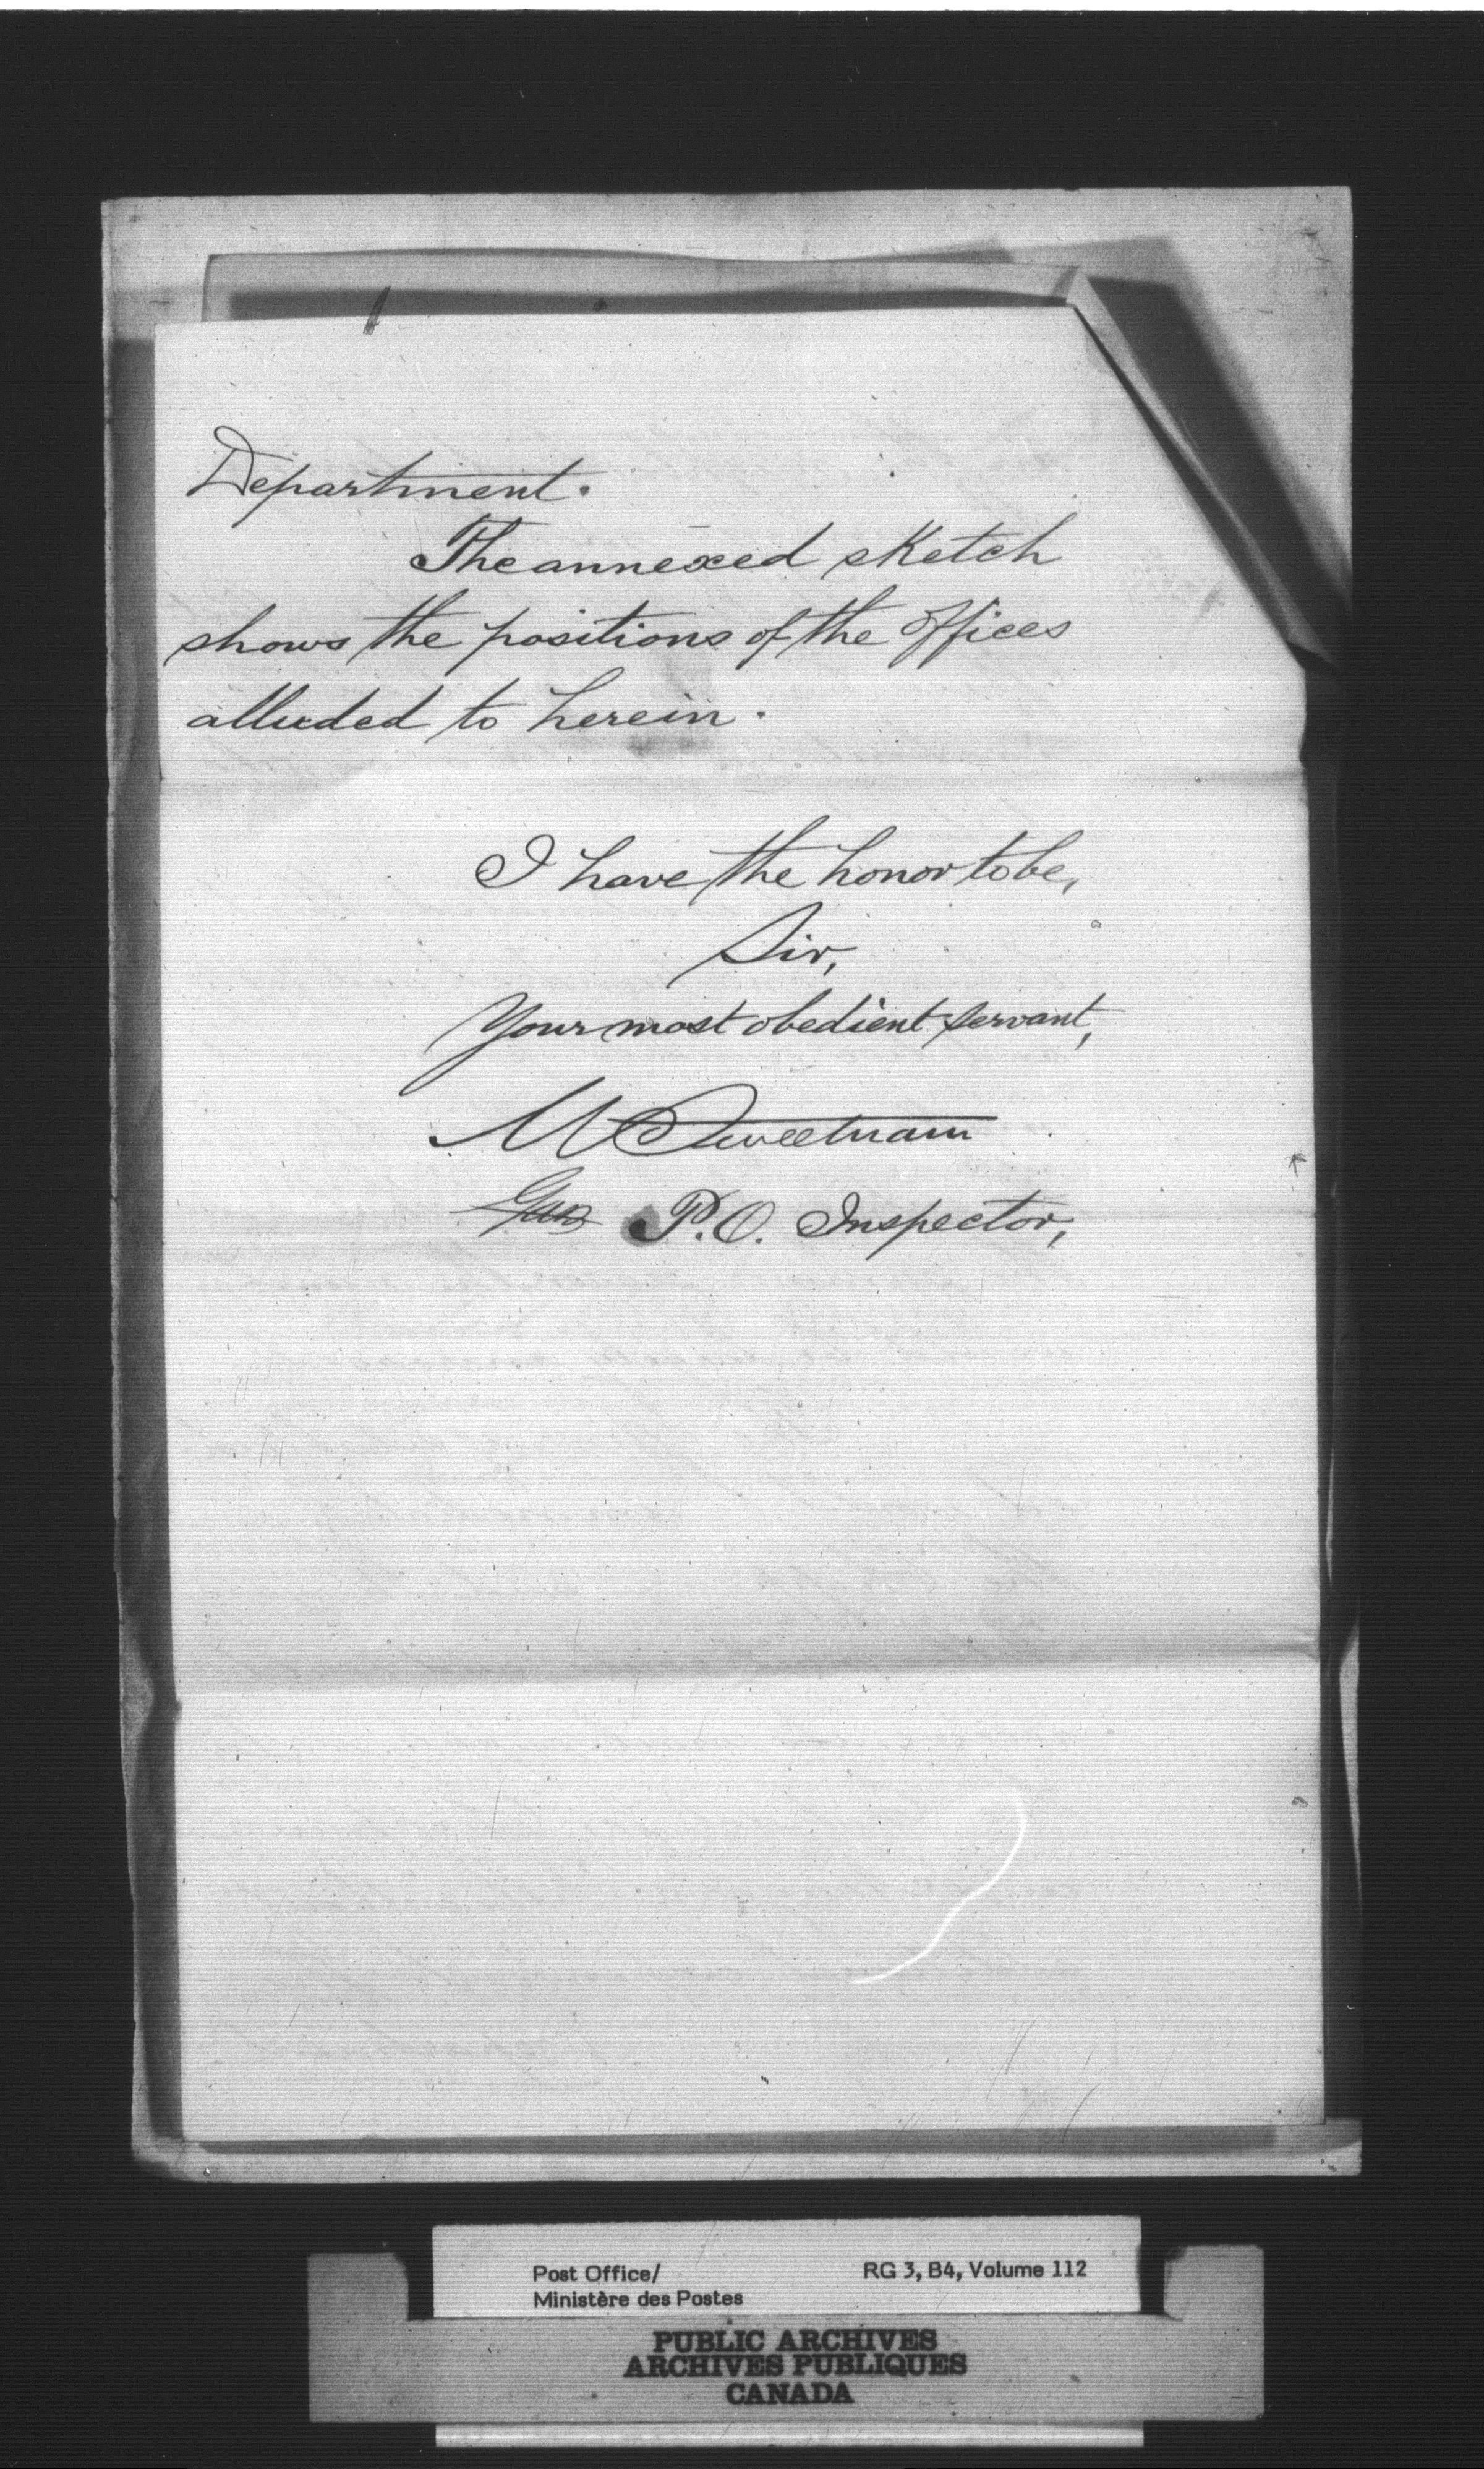 Department.
The annexed sketch
shows the positions of the Offices
alluded to herein.
I have the honor to be,
Sir,
Your most obedient servant,
M Sweetnam
P.O. Inspector,
Post Office/
Ministère des Postes
RG 3, B4, Volume 112
PUBLIC ARCHIVES
ARCHIVES PUBLIQUES
CANADA